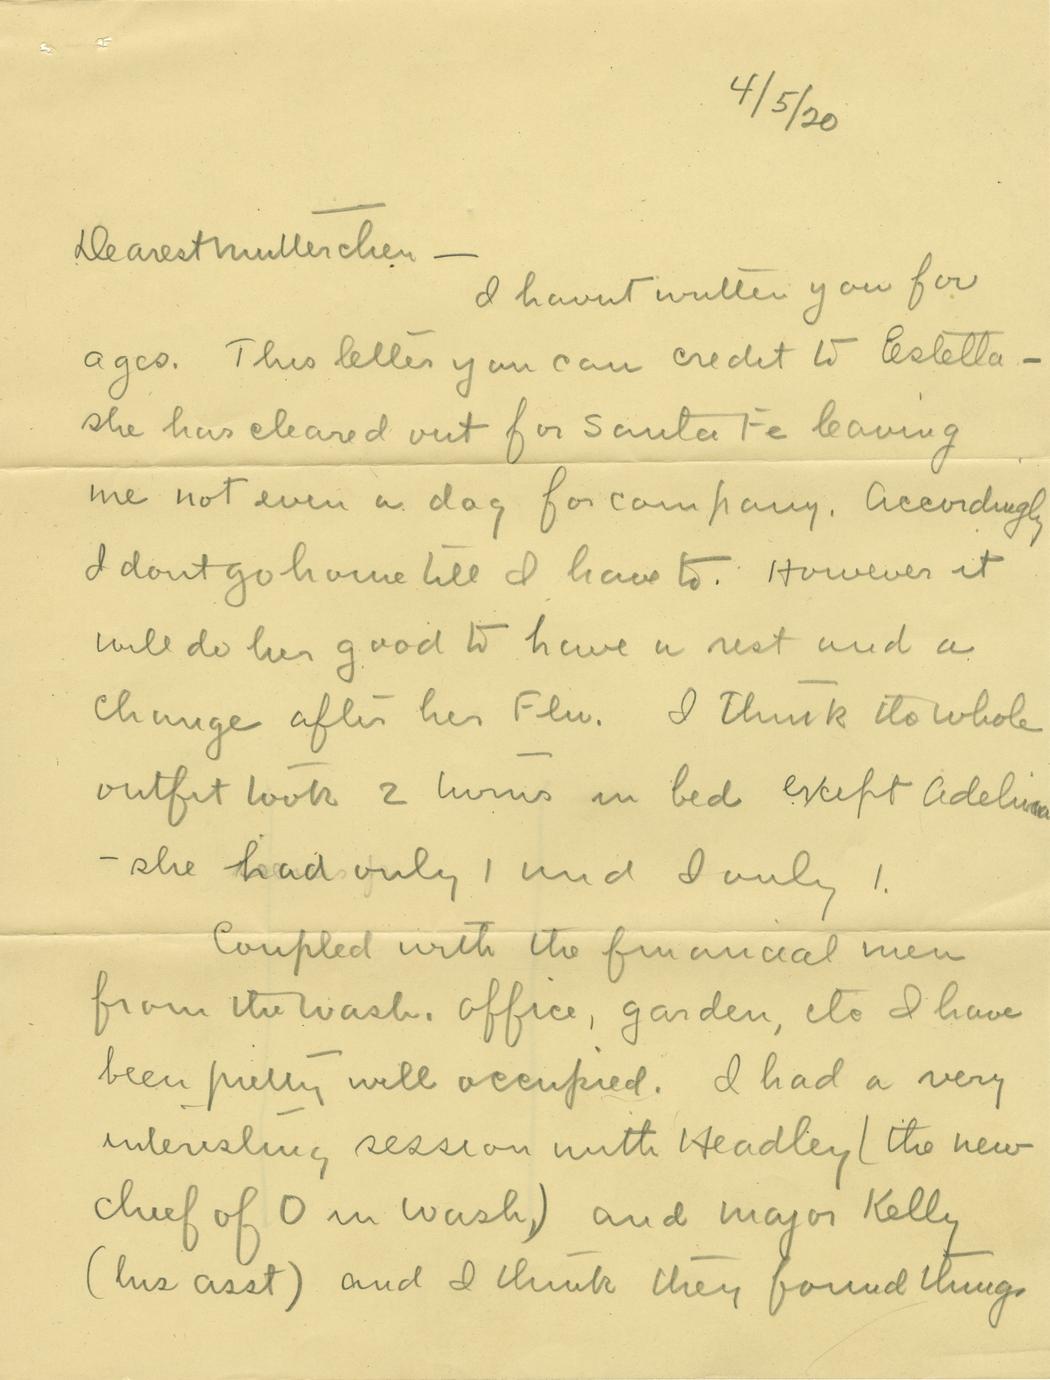 4/5/20
Dearest Mutterchen —
I havnt written you for
ages. This letter you can credit to Estella —
she has cleared out for Santa Fe leaving
me not even a dog for company. Accordingly
I dont go home till I have to. However it
will do her good to have a rest and a
change after her Flu. I think the whole
outfit took 2 turns in bed except Adelina
— she had only 1 and I only 1.
Coupled with the financial men
from the Wash. office, garden, etc I have
been pretty well occupied. I had a very
interesting session with Headley (the new
chief of O in Wash,) and Major Kelly
(his asst) and I think they found things